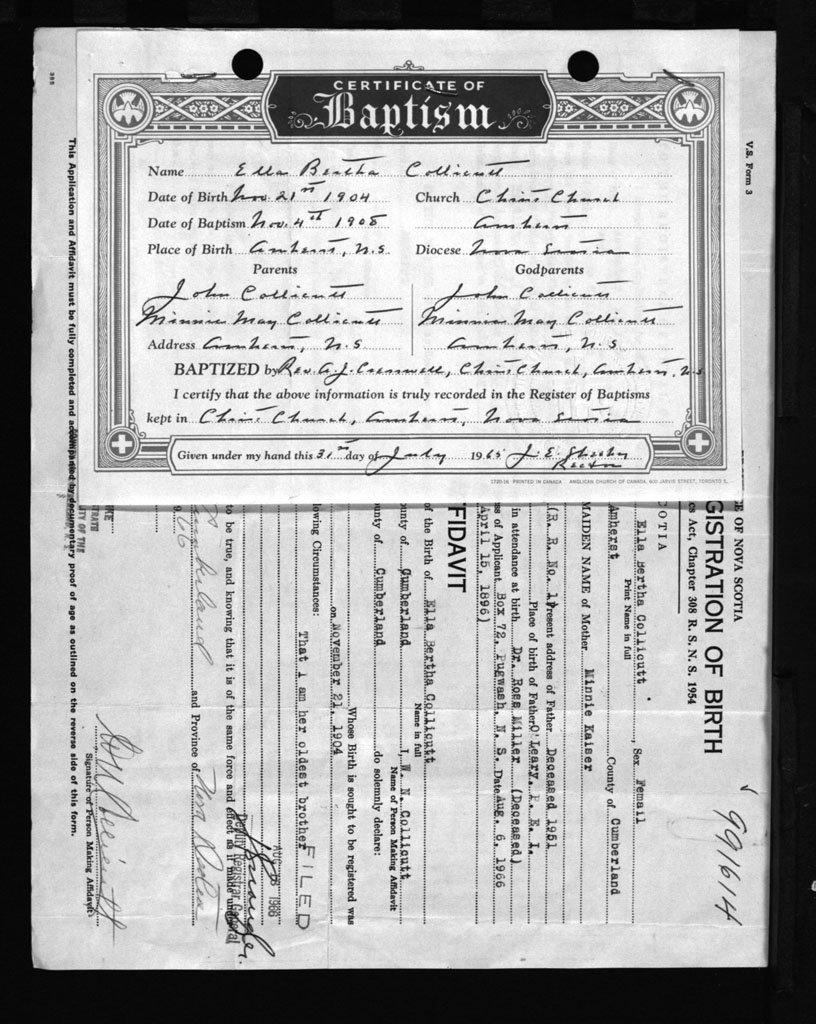 CERTIFICATE OF
Baptism
Name Ella Bertha Collicutt
Date of Birth Nov. 21st 1904 Church Christ Church
Date of Baptism Nov. 4th 1908 Amherst
Place of Birth Amherst, N.S. Diocese Nova Scotia
Parents Godparents
John Collicutt John Collicutt
Minnie May Collicutt Minnie May Collicutt
Address Amherst, N.S Amherst, N.S
BAPTIZED by Rev. A. J. Cresswell, Christ Church, Amherst, N.S
I certify that the above information is truly recorded in the Register of Baptisms
kept in Christ Church, Amherst, Nova Scotia
Given under my hand this 31st day of July 1965 J. E.
Rector
1720-16 PRINTED IN CANADA ANGLICAN CHURCH OF CANADA, 600 JARVIS STREET, TORONTO 5,
V.S. Form 3
991614
E OF NOVA SCOTIA
GISTRATION OF BIRTH
cs Act, Chapter 308 R. S. N. S. 1954
COTIA
Ella Bertha Collicutt, Sex Femail
Print Name in full
Amherst County of Cumberland
MAIDEN NAME of Mother Minnie Kaiser
(R. R. No. 1) Present address of Father Deceased 1951
Place of birth of Father O'Leary, P. E. I.
in attendance at birth Dr. Ross Miller (Deceased)
ss of Applicant Box 72, Pugwash, N. S. Date Aug. 6, 1966
April 15, 1896)
FIDAVIT
of the Birth of Ella Bertha Collicutt
Name in full
I, W. N. Collicutt
Name of Person Making Affidavit
ounty of Cumberland
unty of Cumberland do solemnly declare:
Whose Birth is sought to be registered was
on November 21, 1904
lowing Circumstances:
That I am her oldest brother
FILED
AUG 1966
Deputy Registrar General
to be true, and knowing that it is of the same force and effect as if made under
Cumberland and Province of Nova Scotia
966
Signature of Person Making Affidavit)
This Application and Affidavit must be fully completed and accompanied by documentary proof of age as outlined on the reverse side of this form.